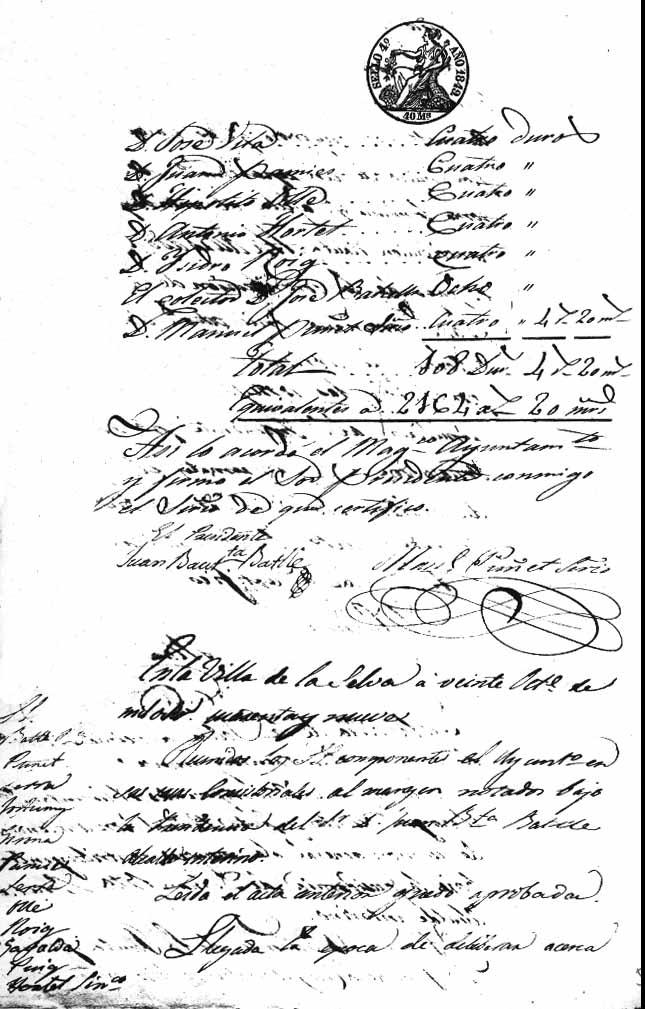 SELLO 4º AÑO 1849.
40 Ms
D. José Vila Cuatro duros
D. Juan Cuatro "
D. Hipolito Olle Cuatro "
D. Antonio Hortet Cuatro "
D. Ysidro Roig Cuatro "
El colector D. José Batlle Ocho "
D. Manuel Puñet Srio. Cuatro " 4 r. 20 m
Total 108 Dur. 4 r. 20 m
Equivalentes a 2164 r. 20 mrs
Asi lo acordó el Mag. Ayuntamto
y firmó el Sor. Presidente conmigo
el Srio de que certifico.
El Presidente
Juan Bauta Batlle
Manl. Puñet Srio
En la Villa de la Selva à veinte Octe. de
mil ocho cuarenta y nueve
Reunidos los Ss. componentes el Ayunto en
sus casas Consistoriales al margen notados bajo
la Presidencia del Sr. D. Juan Bta Batlle
Alcalde interino
Leida el acta anterior quedó aprobada.
Llegada la epoca de deliberar acerca
Ss.
Batlle P.
Puñet
Olle
Roig
Gavaldá
Puig
Hortet Sinco